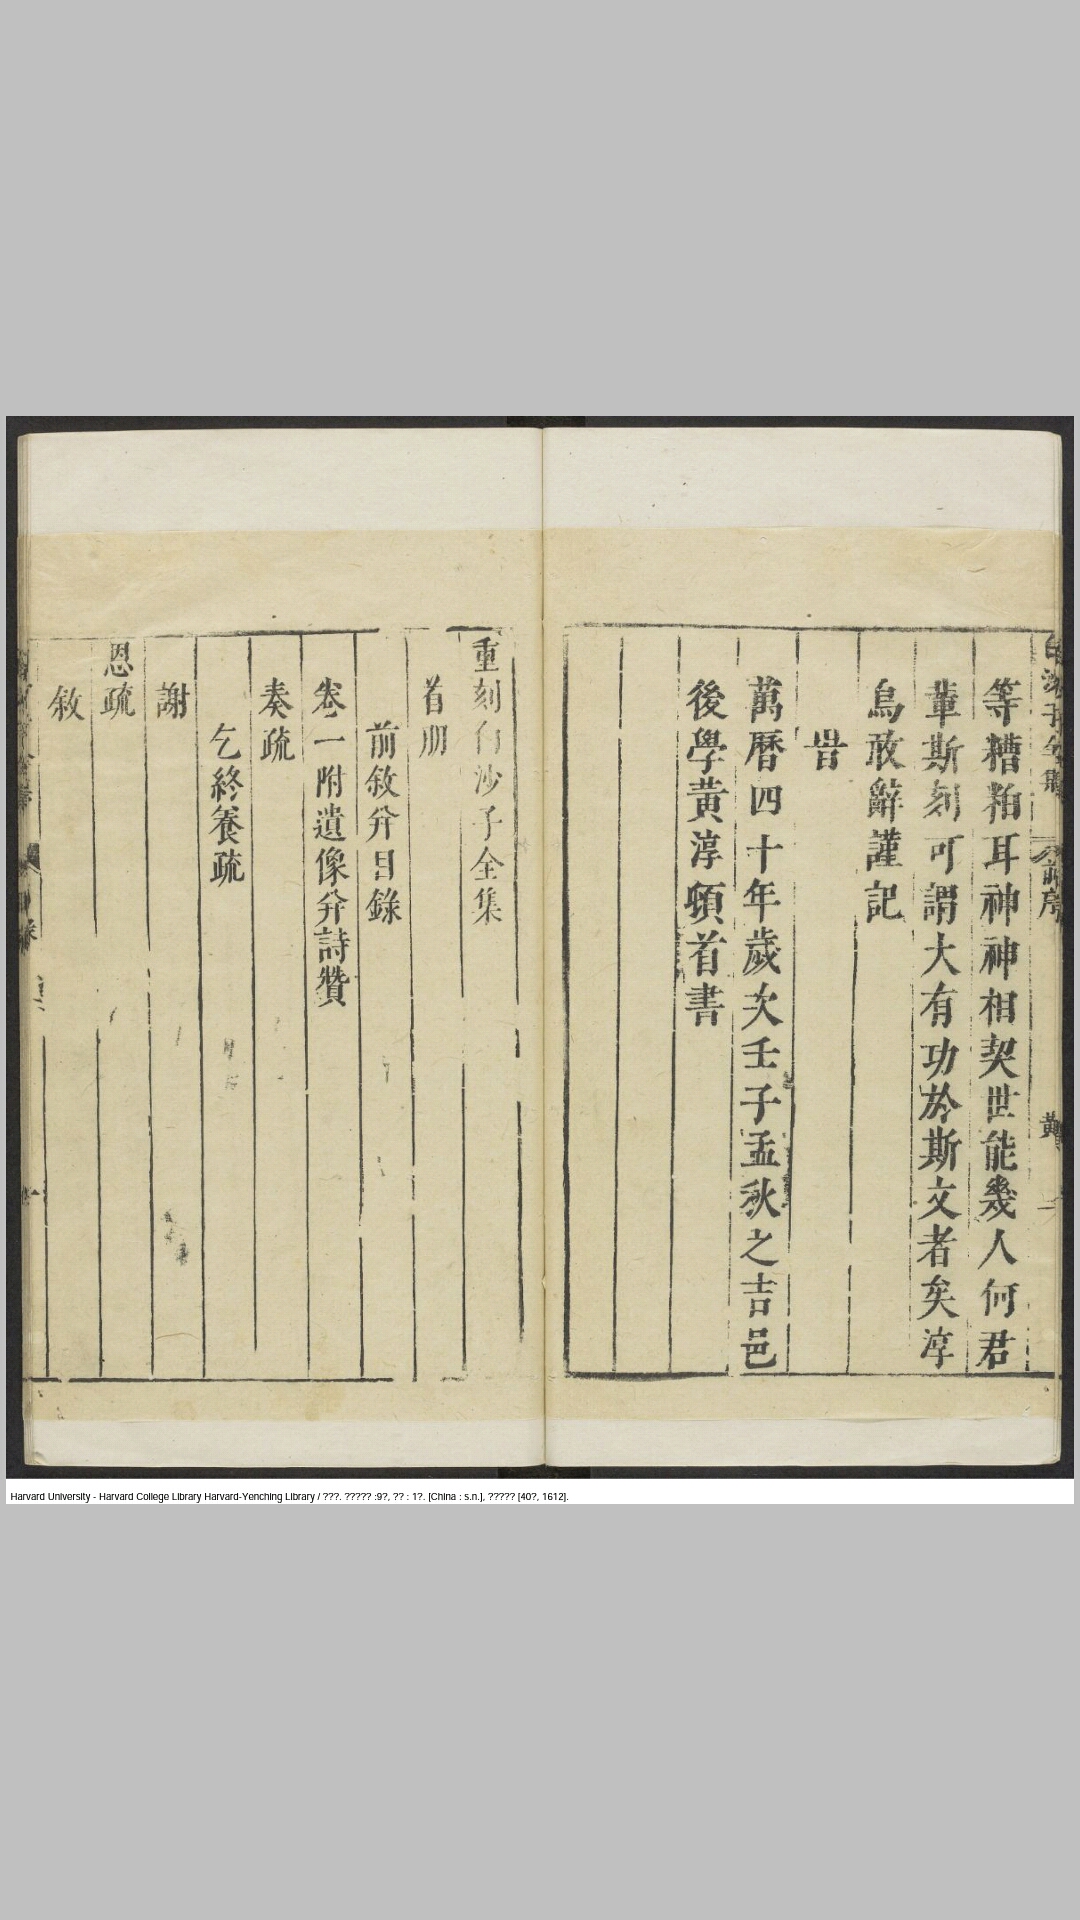 等糟粕耳神神相契世能幾人何君
輩斯刻可謂大有功於斯文者矣淳
烏敢辭謹記
旹
萬曆四十年歲次壬子孟秋之吉邑
後學黃淳頓首書
重刻白沙子全集
首册
前敘并目錄
卷一附遺像并詩贊
奏疏
乞終養疏
謝
恩疏
敘
Harvard University - Harvard College Library Harvard-Yenching Library / ???. ????? :9?, ?? : 1?. [China : s.n.], ????? [40?, 1612].